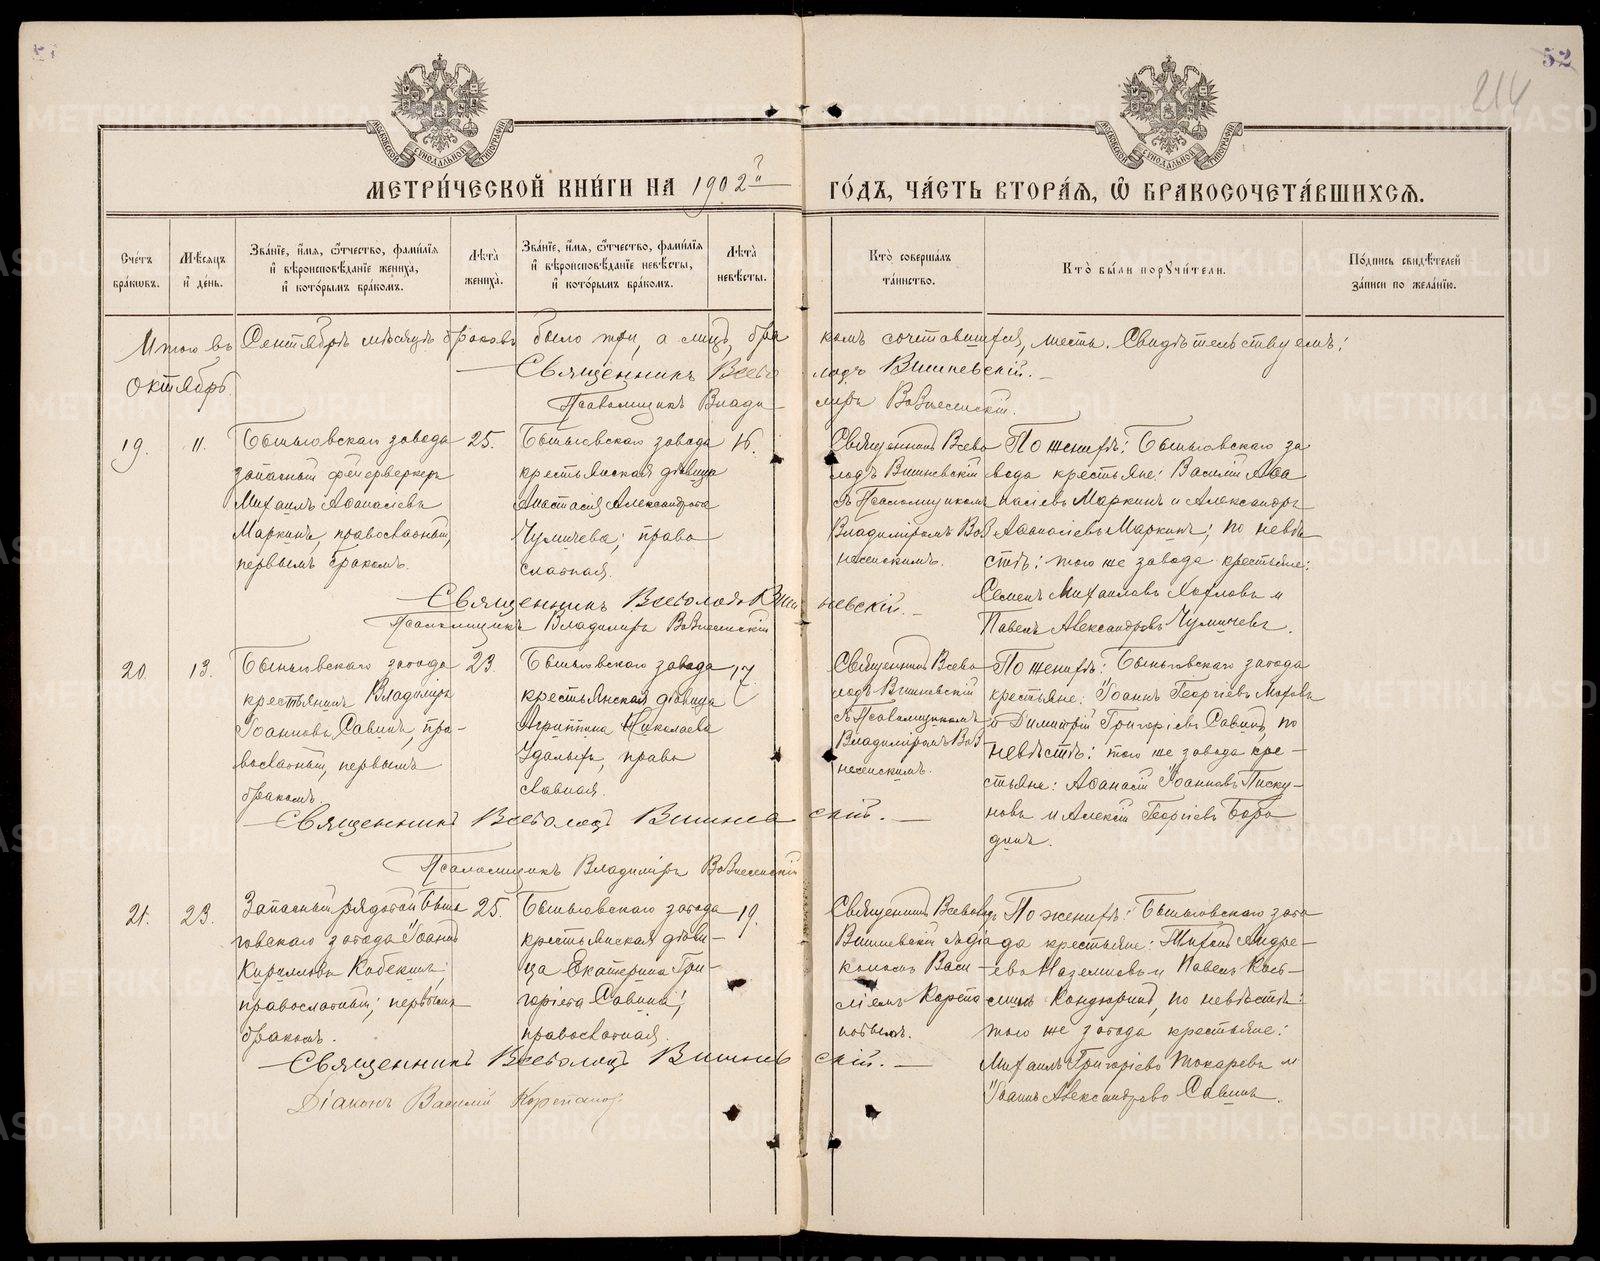 52
214
МЕТРИ́ЧЕСКОЙ КНИ́ГИ НА 1902й
ГО́ДЪ, ЧА́СТЬ ВТОРА́Я, Ѿ БРАКОСОЧЕТА́ВШИХСЯ.
МОСКОВСКОЙ СѴНОДАЛЬНОЙ ТИПОГРАФІИ
МОСКОВСКОЙ СѴНОДАЛЬНОЙ ТИПОГРАФІИ
Сче́тъ бра́кωвъ.
Мѣ́сяцъ и҆ де́нь.
Зва́нїе, и҆́мя, ѻ҆́тчество, фами́лїя и҆ вѣроисповѣ́данїе жениха̀, и҆ кото́рымъ бра́комъ.
Лѣ́та жениха̀.
Зва́нїе, и҆́мя, ѻ҆́тчество, фами́лїя и҆ вѣроисповѣ́данїе невѣ́сты, и҆ кото́рымъ бра́комъ.
Лѣ́та невѣ́сты.
Кто̀ соверша́лъ та́инство.
Кто̀ бы́ли порꙋчи́тели.
По́дпись свидѣ́телей за́писи по жела́нїю.
Итого въ Сентябрѣ мѣсяцѣ браковъ было три, а лицъ, бра
комъ сочетавшихся, шесть. Свидѣтельствуемъ:
Священникъ Всево
лодъ Вишневскій.
Псаломщикъ Влади
миръ Вознесенскій.
Октябрь
19.
11.
Быньговскаго завода
запасный фейерверкеръ
Михаилъ Аѳанасіевъ
Маркинъ, православный,
первымъ бракомъ.
25.
Быньговскаго завода
крестьянская дѣвица
Анастасія Александрова
Чумичева, право
славная.
16.
Священникъ Всево
лодъ Вишневскій
съ Псаломщикомъ
Владиміромъ Воз
несенскимъ.
По женихѣ: Быньговскаго за
вода крестьяне: Василій Аѳа
насіевъ Маркинъ и Александръ
Аѳанасіевъ Маркинъ; по невѣ
стѣ: того же завода крестьяне:
Семенъ Михаиловъ Хохловъ и
Павелъ Александровъ Чумичевъ.
Священникъ Всеволодъ Виш
невскій.
Псаломщикъ Владиміръ Вознесенскій
20
13.
Быньговскаго завода
крестьянинъ Владиміръ
Іоанновъ Савинъ, пра-
вославный, первымъ
бракомъ.
23
Быньговскаго завода
крестьянская дѣвица
Агриппина Николаева
Удалыхъ, право
славная.
17.
Священникъ Всево
лодъ Вишневскій
съ Псаломщикомъ
Владиміромъ Воз
несенскимъ.
По женихѣ: Быньговскаго завода
крестьяне: Іоаннъ Георгіевъ Морозовъ
и Димитрій Григоріевъ Савинъ, по
невѣстѣ: того же завода кре-
стьяне: Аѳанасій Іоанновъ Писку-
новъ и Алексій Георгіевъ Боро
динъ.
Священникъ Всеволодъ Вишнев
скій.
Псаломщикъ Владиміръ Вознесенскій
21.
23.
Запасный рядовой Бынь
говскаго завода Іоаннъ
Кирилловъ Кобекинъ,
православный, первымъ
бракомъ.
25.
Быньговскаго завода
крестьянская дѣви-
ца Екатерина Гри-
горіева Савина,
православная.
19.
Священникъ Всеволодъ
Вишневскій съ діа
кономъ Васи-
ліемъ Корепа
новымъ.
По женихѣ: Быньговскаго заво
да крестьяне: Тихонъ Андре-
евъ Наземновъ и Павелъ Козь-
минъ Кондюринъ, по невѣстѣ:
того же завода крестьяне:
Михаилъ Григоріевъ Токаревъ и
Іоаннъ Александровъ Савинъ.
Священникъ Всеволодъ Вишнев
скій.
Діаконъ Василій Корепановъ